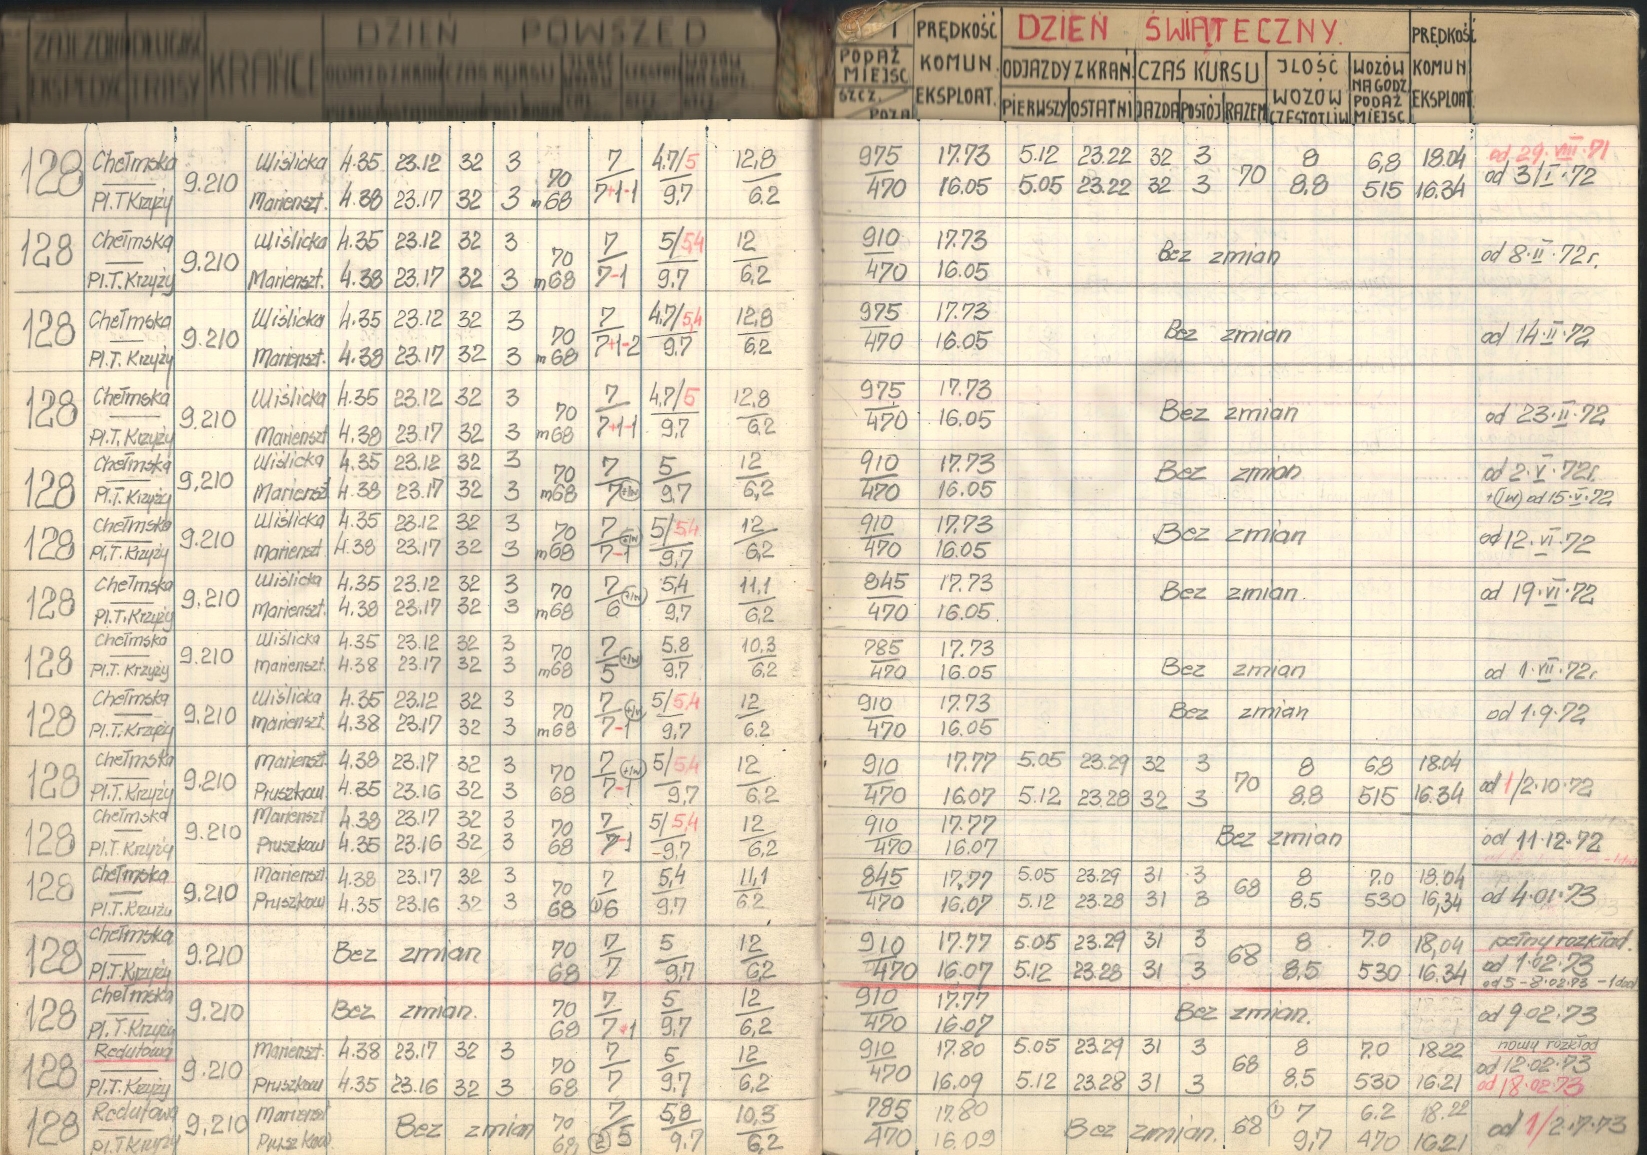 ZAJEZDNIA DŁUGOŚĆ KRAŃCE DZIEŃ POWSZED
EKSPEDYC TRASY
PODAŻ MIEJSC SZCZ. POZA
PRĘDKOŚĆ KOMUN. EKSPLOAT.
DZIEŃ ŚWIĄTECZNY.
ODJAZDY Z KRAŃ. CZAS KURSU JLOŚĆ WOZÓW CZĘSTOTLIW
PIERWSZY OSTATNI JAZDA POSTÓJ RAZEM
WOZÓW NA GODZ PODAŻ MIEJSC
PRĘDKOŚĆ KOMUN EKSPLOAT.
128 Chełmska 9.210 Wiślicka 4.35 23.12 32 3 70 7 4.7/5 12,8 975 17.73 5.12 23.22 32 3 70 8 6,8 18.04 od 29.VIII.71
Pl.T Krzyży Marienszt. 4.38 23.17 32 3 m68 7+1-1 9,7 6.2 470 16.05 5.05 23.22 32 3 8,8 515 16.34 od 3/I.72
128 Chełmska 9.210 Wiślicka 4.35 23.12 32 3 70 7 5/5,4 12 910 17.73 Bez zmian od 8.II.72r.
Pl.T.Krzyży Marienszt. 4.38 23.17 32 3 m68 7-1 9,7 6,2 470 16.05
128 Chełmska 9.210 Wiślicka 4.35 23.12 32 3 70 7 4,7/5,4 12,8 975 17.73 Bez zmian od 14.II.72
Pl.T.Krzyży Marienszt. 4.38 23.17 32 3 m68 7+1-2 9,7 6,2 470 16.05
128 Chełmska 9.210 Wiślicka 4.35 23.12 32 3 70 7 4,7/5 12,8 975 17.73 Bez zmian od 23.II.72
Pl.T.Krzyży Marienszt 4.38 23.17 32 3 m68 7+1-1 9,7 6,2 470 16.05
128 Chełmska 9,210 Wiślicka 4.35 23.12 32 3 70 7 5 12 910 17.73 Bez zmian od 2.V.72r.
Pl.T.Krzyży Marienszt 4.38 23.17 32 3 m68 7 +1w 9,7 6,2 470 16.05 +(1w) od 15.V.72
128 Chełmska 9.210 Wiślicka 4.35 23.12 32 3 70 7 +1w 5/5,4 12 910 17.73 Bez zmian od 12.VI.72
Pl.T.Krzyży Marienszt 4.38 23.17 32 3 m68 7-1 9,7 6,2 470 16.05
128 Chełmska 9.210 Wiślicka 4.35 23.12 32 3 70 7 +1w 5,4 11,1 845 17.73 Bez zmian. od 19.VI.72
Pl.T.Krzyży Marienszt. 4.38 23.17 32 3 m68 6 9,7 6,2 470 16.05
128 Chełmska 9.210 Wiślicka 4.35 23.12 32 3 70 7 +1w 5.8 10,3 785 17.73 Bez zmian od 1.VII.72r
Pl.T.Krzyży Marienszt. 4.38 23.17 32 3 m68 5 9,7 6,2 470 16.05
128 Chełmska 9.210 Wiślicka 4.35 23.12 32 3 70 7 +1w 5/5,4 12 910 17.73 Bez zmian od 1.9.72
Pl.T.Krzyży Marienszt 4.38 23.17 32 3 m68 7-1 9,7 6.2 470 16.05
128 Chełmska 9.210 Marienszt 4.38 23.17 32 3 70 7 +1w 5/5,4 12 910 17.77 5.05 23.29 32 3 70 8 6,8 18.04 od 1/2.10.72
Pl.T.Krzyży Pruszkow 4.35 23.16 32 3 68 7-1 9,7 6,2 470 16.07 5.12 23.28 32 3 8,8 515 16.34
128 Chełmska 9.210 Marienszt 4.38 23.17 32 3 70 7 5/5,4 12 910 17.77 Bez zmian od 11.12.72
Pl.T.Krzyży Pruszkow 4.35 23.16 32 3 68 7-1 9,7 6,2 470 16.07
128 Chełmska 9.210 Marienszt. 4.38 23.17 32 3 70 7 5,4 11,1 845 17.77 5.05 23.29 31 3 68 8 7.0 18.04 od 4.01.73
Pl.T.Krzyży Pruszkow 4.35 23.16 32 3 68 (1)6 9,7 6.2 470 16.07 5.12 23.28 31 3 8,5 530 16,34
128 Chełmska 9.210 Bez zmian 70 7 5 12 910 17.77 5.05 23.29 31 3 68 8 7.0 18,04 pełny rozkład.
Pl.T.Krzyży 68 7 9,7 6,2 470 16.07 5.12 23.28 31 3 8,5 530 16.34 od 1.02.73
od 5-8.02.73 -1 dod
128 Chełmska 9.210 Bez zmian. 70 7 5 12 910 17.77 Bez zmian. od 9.02.73
Pl.T.Krzyży 68 7+1 9.7 6,2 470 16.07
128 Redutowa 9.210 Marienszt. 4.38 23.17 32 3 70 7 5 12 910 17.80 5.05 23.29 31 3 68 8 7.0 18.22 nowy rozkład
od 12.02.73
Pl.T.Krzyży Pruszkow 4.35 23.16 32 3 68 7 9,7 6,2 470 16.09 5.12 23.28 31 3 8,5 530 16.21 od 18.02.73
128 Redutowa 9.210 Marienszt Bez zmian 70 7 5,8 10,3 785 17.80 Bez zmian. 68 (1) 7 6.2 18.22 od 1/2.7.73
Pl.T.Krzyży Pruszkow. 68 (2)5 9.7 6,2 470 16.09 9,7 470 16.21